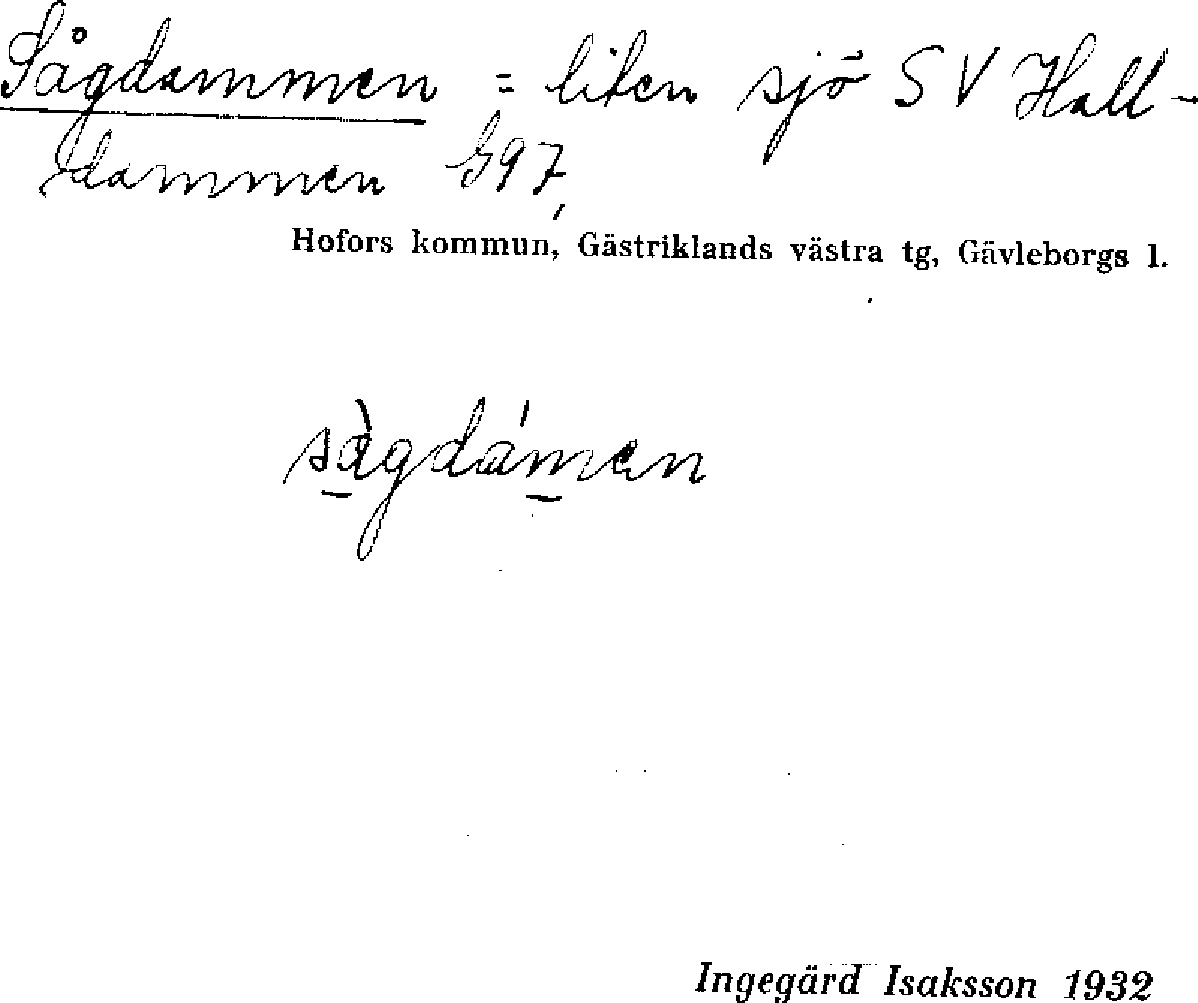 Sågdammen = liten sjö SV Hall-
dammen G97,
Hofors kommun, Gästriklands västra tg, Gävleborgs l.
sàgdámen
Ingegärd Isaksson 1932